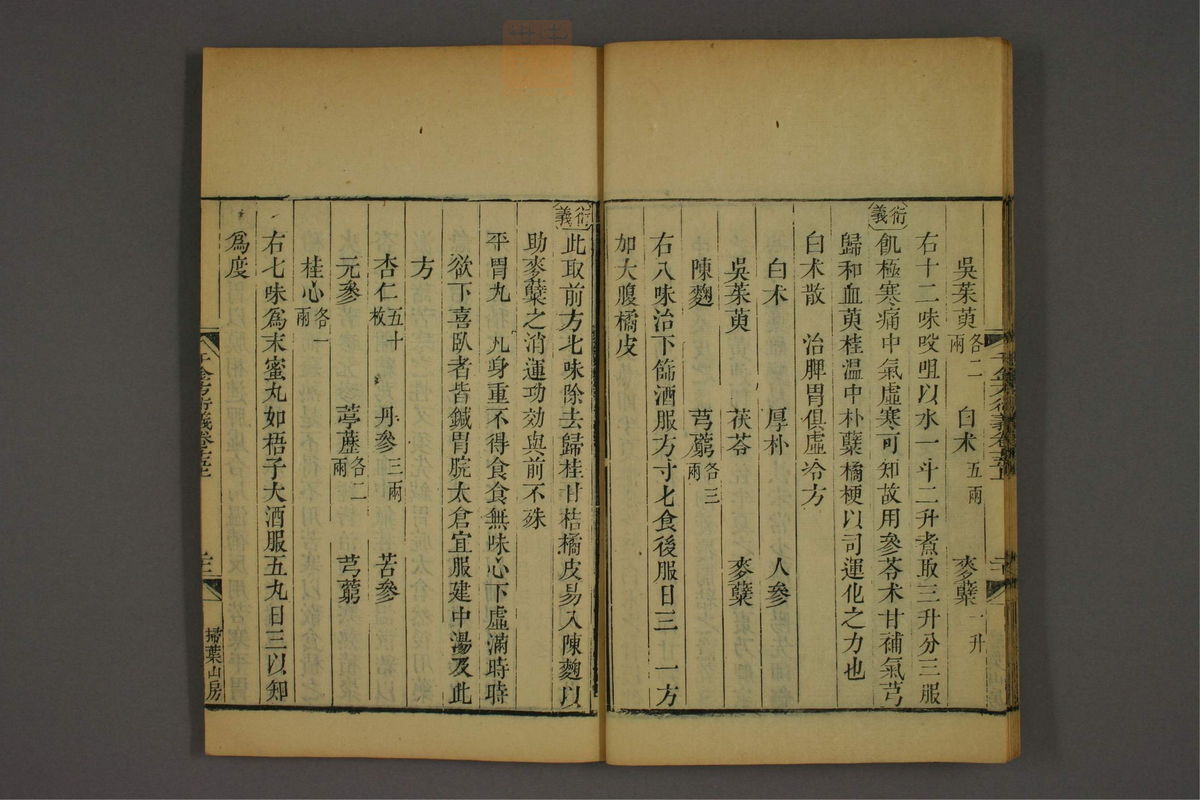 吳茱萸各二兩 白术五兩 麥櫱一升
右十二味㕮咀以水一斗二升煮取三升分三服
衍義
飢極寒痛中氣虛寒可知故用參苓术甘補氣芎
歸和血萸桂温中朴櫱橘梗以司運化之力也
白术散 治脾胃俱虛冷方
白术 厚朴 人參
吳茱萸 茯苓 麥櫱
陳麴 芎藭各三兩
右八味治下篩酒服方寸匕食後服日三 一方
加大腹橘皮
衍義
此取前方七味除去歸桂甘桔橘皮易入陳麴以
助麥櫱之消運功効與前不殊
平胃丸 凡身重不得食食無味心下虛滿時時
欲下喜臥者皆鍼胃脘太倉宜服建中湯及此
方
杏仁五十枚 丹參三兩 苦參
元參 葶藶各二兩 芎藭
桂心各一兩
右七味為末蜜丸如梧子大酒服五丸日三以知
為度
千金方衍義卷
掃葉山房